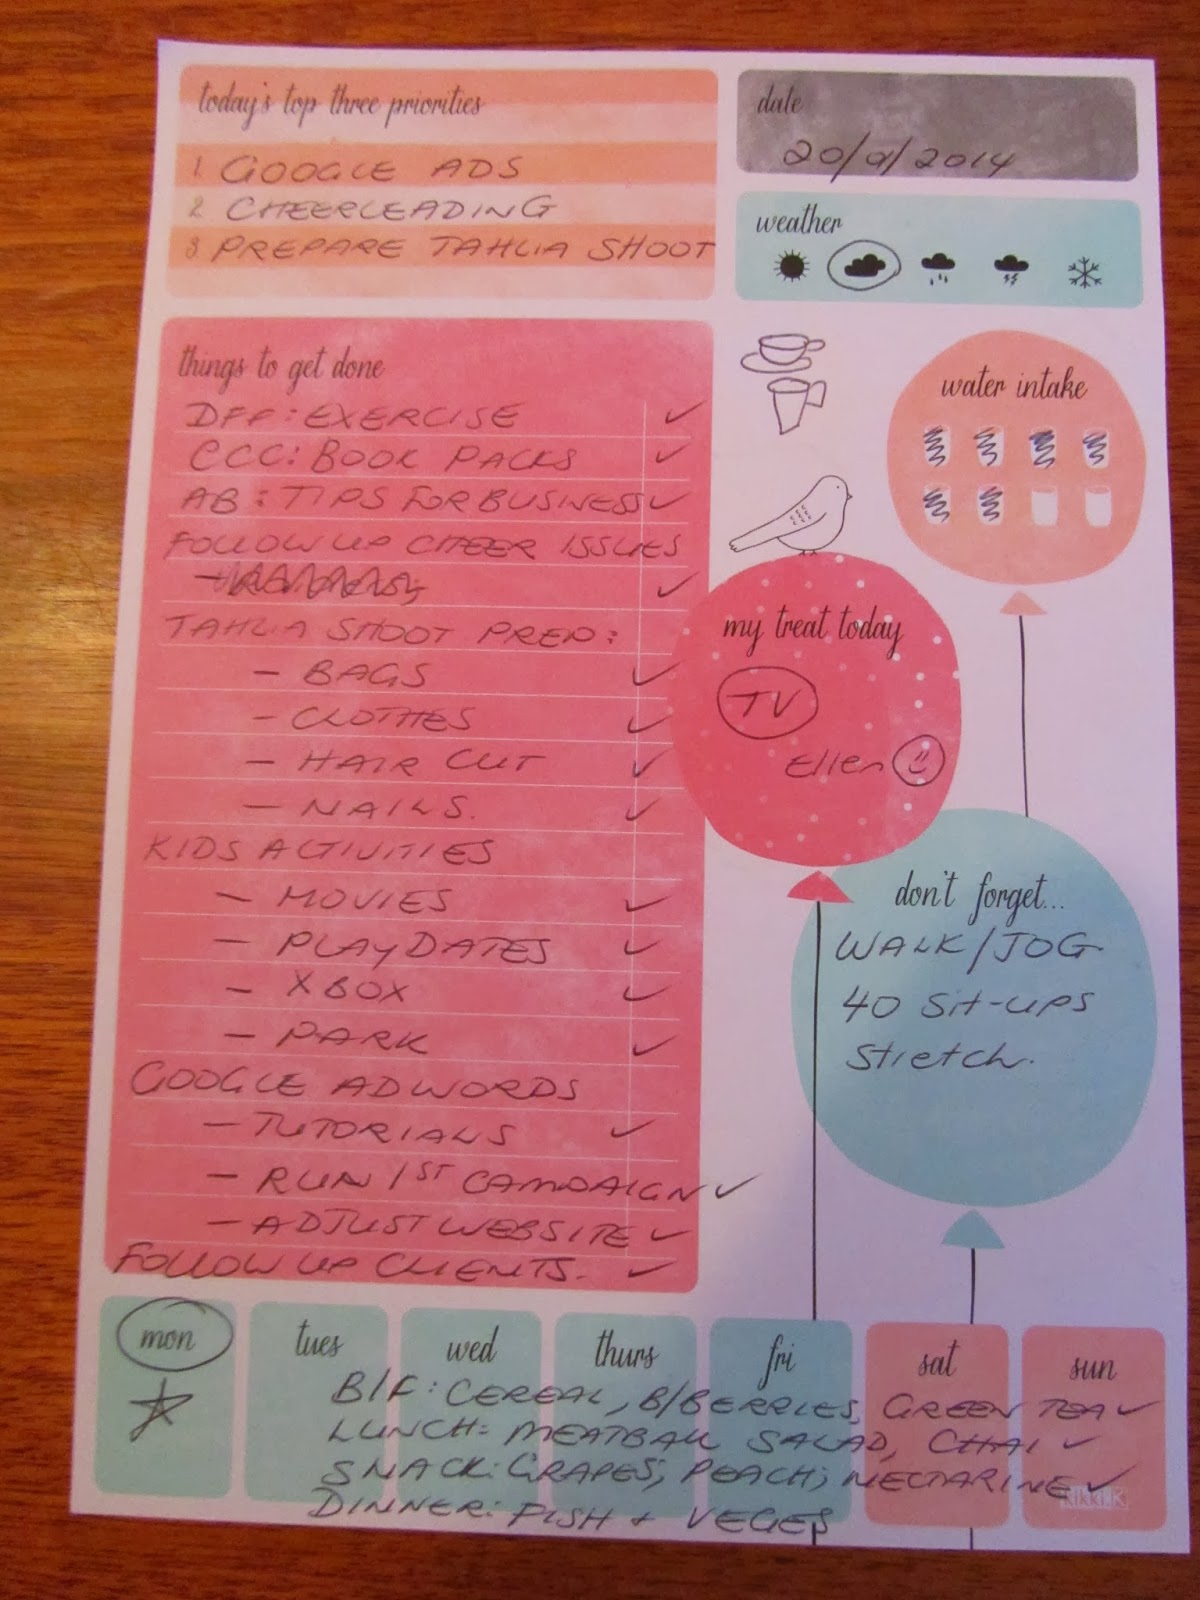 today's top three priorities
1 GOOGLE ADS
2 CHEERLEADING
3 PREPARE TAHLIA SHOOT
date
weather
things to get done
DFF: EXERCISE
CCC: BOOK PACKS
AB: TIPS FOR BUSINESS
FOLLOW UP CHEER ISSUES
TAHLIA SHOOT PREP:
- BAGS
- CLOTHES
- HAIR CUT
- NAILS.
KIDS ACTIVITIES
- MOVIES
- PLAYDATES
- XBOX
- PARK
GOOGLE ADWORDS
- TUTORIALS
- RUN 1ST CAMPAIGN
- ADJUST WEBSITE
FOLLOW UP CLIENTS.
water intake
my treat today
TV
Ellen
don't forget...
WALK/JOG
40 Sit-ups
Stretch.
mon tues wed thurs fri sat sun
B/F: CEREAL, B/BERRIES, GREEN TEA
LUNCH: MEATBALL SALAD, CHAI
SNACK: GRAPES; PEACH; NECTARINE
kikki.K
DINNER: FISH + VEGES